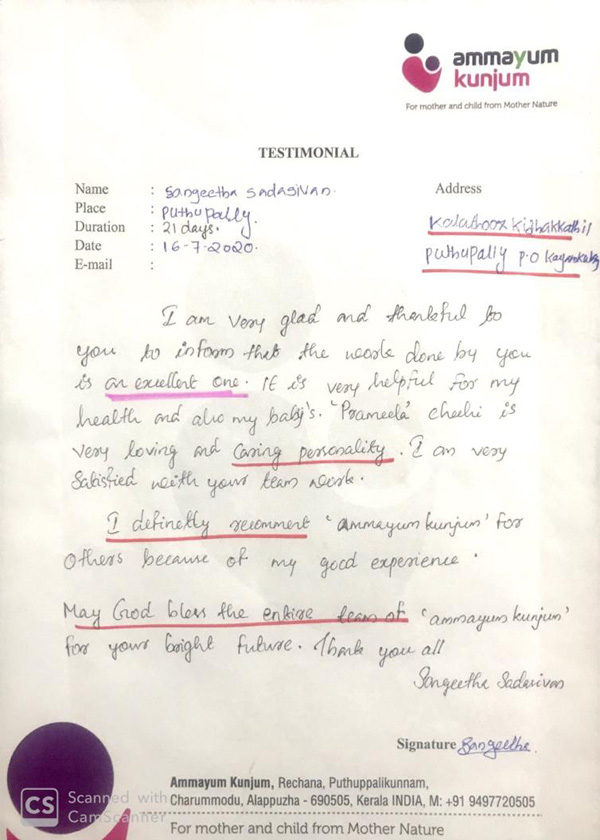 ammayum
kunjum
For mother and child from Mother Nature
TESTIMONIAL
Name : Sangeetha Sadasivan.
Address
Place : Puthupally.
Duration : 21 days.
Kalathoor Kizhakkathil
Date : 16-7-2020.
Puthupally P.O
E-mail :
I am very glad and thankful to
you to inform that the work done by you
is an excellent one. It is very helpful for my
health and also my baby's. 'Prameela' chechi is
very loving and Caring personality. I am very
Satisfied with your team work.
I definetly recomment 'ammayum kunjum' for
others because of my good experience.
May God bless the entire team of 'ammayum kunjum'
for your bright future. Thank you all
Sangeetha Sadasivan
Signature Sangeetha.
Ammayum Kunjum, Rechana, Puthuppalikunnam,
Charummodu, Alappuzha - 690505, Kerala INDIA, M: +91 9497720505
For mother and child from Mother Nature
CS Scanned with
CamScanner